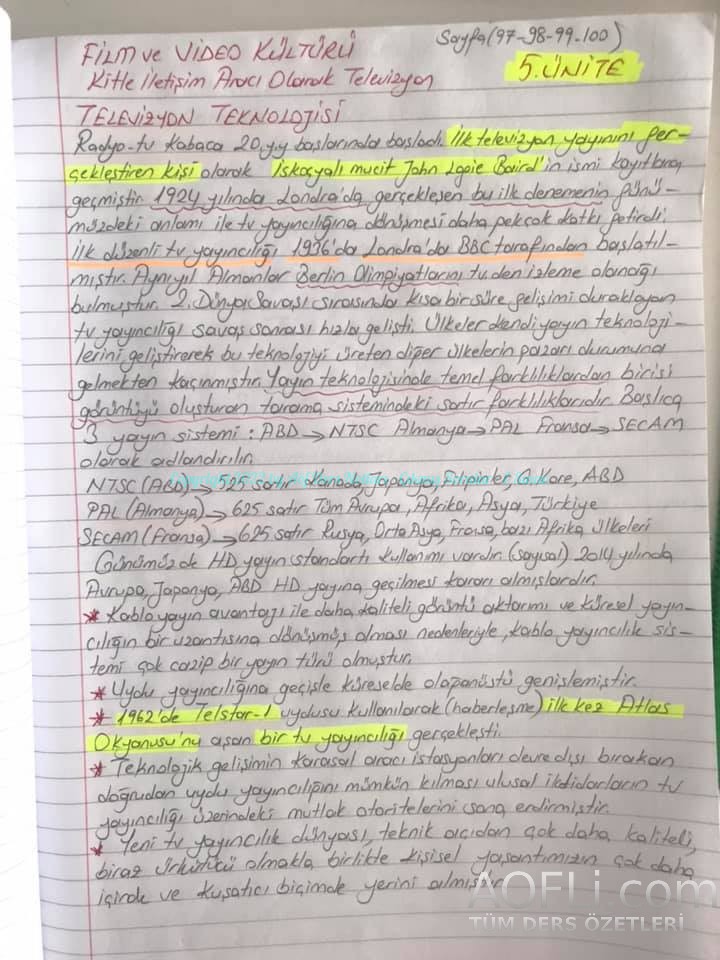 FİLM ve VİDEO KÜLTÜRÜ
Sayfa (97-98-99-100)
Kitle İletişim Aracı Olarak Televizyon
5. ÜNİTE
TELEVİZYON TEKNOLOJİSİ
Radyo-tv kabaca 20.yy başlarında başladı. İlk televizyon yayınını ger-
çekleştiren kişi olarak İskoçyalı mucit John Logie Baird'in ismi kayıtlara
geçmiştir. 1924 yılında Londra'da gerçekleşen bu ilk denemenin günü-
müzdeki anlamı ile tv yayıncılığına dönüşmesi daha pekçok katkı getirdi.
İlk düzenli tv yayıncılığı 1936'da Londra'da BBC tarafından başlatıl-
mıştır. Aynı yıl Almanlar Berlin Olimpiyatlarını tv.den izleme olanağı
bulmuştur. 2. Dünya Savaşı sırasında kısa bir süre gelişimi duraklayan
tv yayıncılığı savaş sonrası hızla gelişti. Ülkeler kendi yayın teknoloji-
lerini geliştirerek bu teknolojiyi üreten diğer ülkelerin pazarı durumuna
gelmekten kaçınmıştır. Yayın teknolojisinde temel farklılıklardan birisi
görüntüyü oluşturan tarama sistemindeki satır farklılıklarıdır. Başlıca
3 yayın sistemi : ABD → NTSC Almanya → PAL Fransa → SECAM
olarak adlandırılır.
NTSC (ABD) → 525 satır Kanada, Japonya, Filipinler, G. Kore, ABD
PAL (Almanya) → 625 satır Tüm Avrupa, Afrika, Asya, Türkiye
SECAM (Fransa) → 625 satır Rusya, Orta Asya, Fransa, bazı Afrika ülkeleri
Günümüzde HD yayın standartı kullanımı vardır. (sayısal) 2014 yılında
Avrupa, Japonya, ABD HD yayına geçilmesi kararı almışlardır.
* Kablo yayın avantajı ile daha kaliteli görüntü aktarımı ve küresel yayın-
cılığın bir uzantısına dönüşmüş olması nedenleriyle, kablo yayıncılık sis-
temi çok cazip bir yayın türü olmuştur.
* Uydu yayıncılığına geçişle küreselde olağanüstü genişlemiştir.
* 1962'de Telstar-1 uydusu kullanılarak (haberleşme) ilk kez Atlas
Okyanusu'nu aşan bir tv yayıncılığı gerçekleşti.
* Teknolojik gelişimin karasal aracı istasyonları devre dışı bırakan
doğrudan uydu yayıncılığını mümkün kılması ulusal iktidarların tv
yayıncılığı üzerindeki mutlak otoritelerini sona erdirmiştir.
* Yeni tv yayıncılık dünyası, teknik açıdan çok daha kaliteli,
biraz ürkütücü olmakla birlikte kişisel yaşantımızın çok daha
içinde ve kuşatıcı biçimde yerini almıştır.
AOFLi.com
TÜM DERS ÖZETLERİ